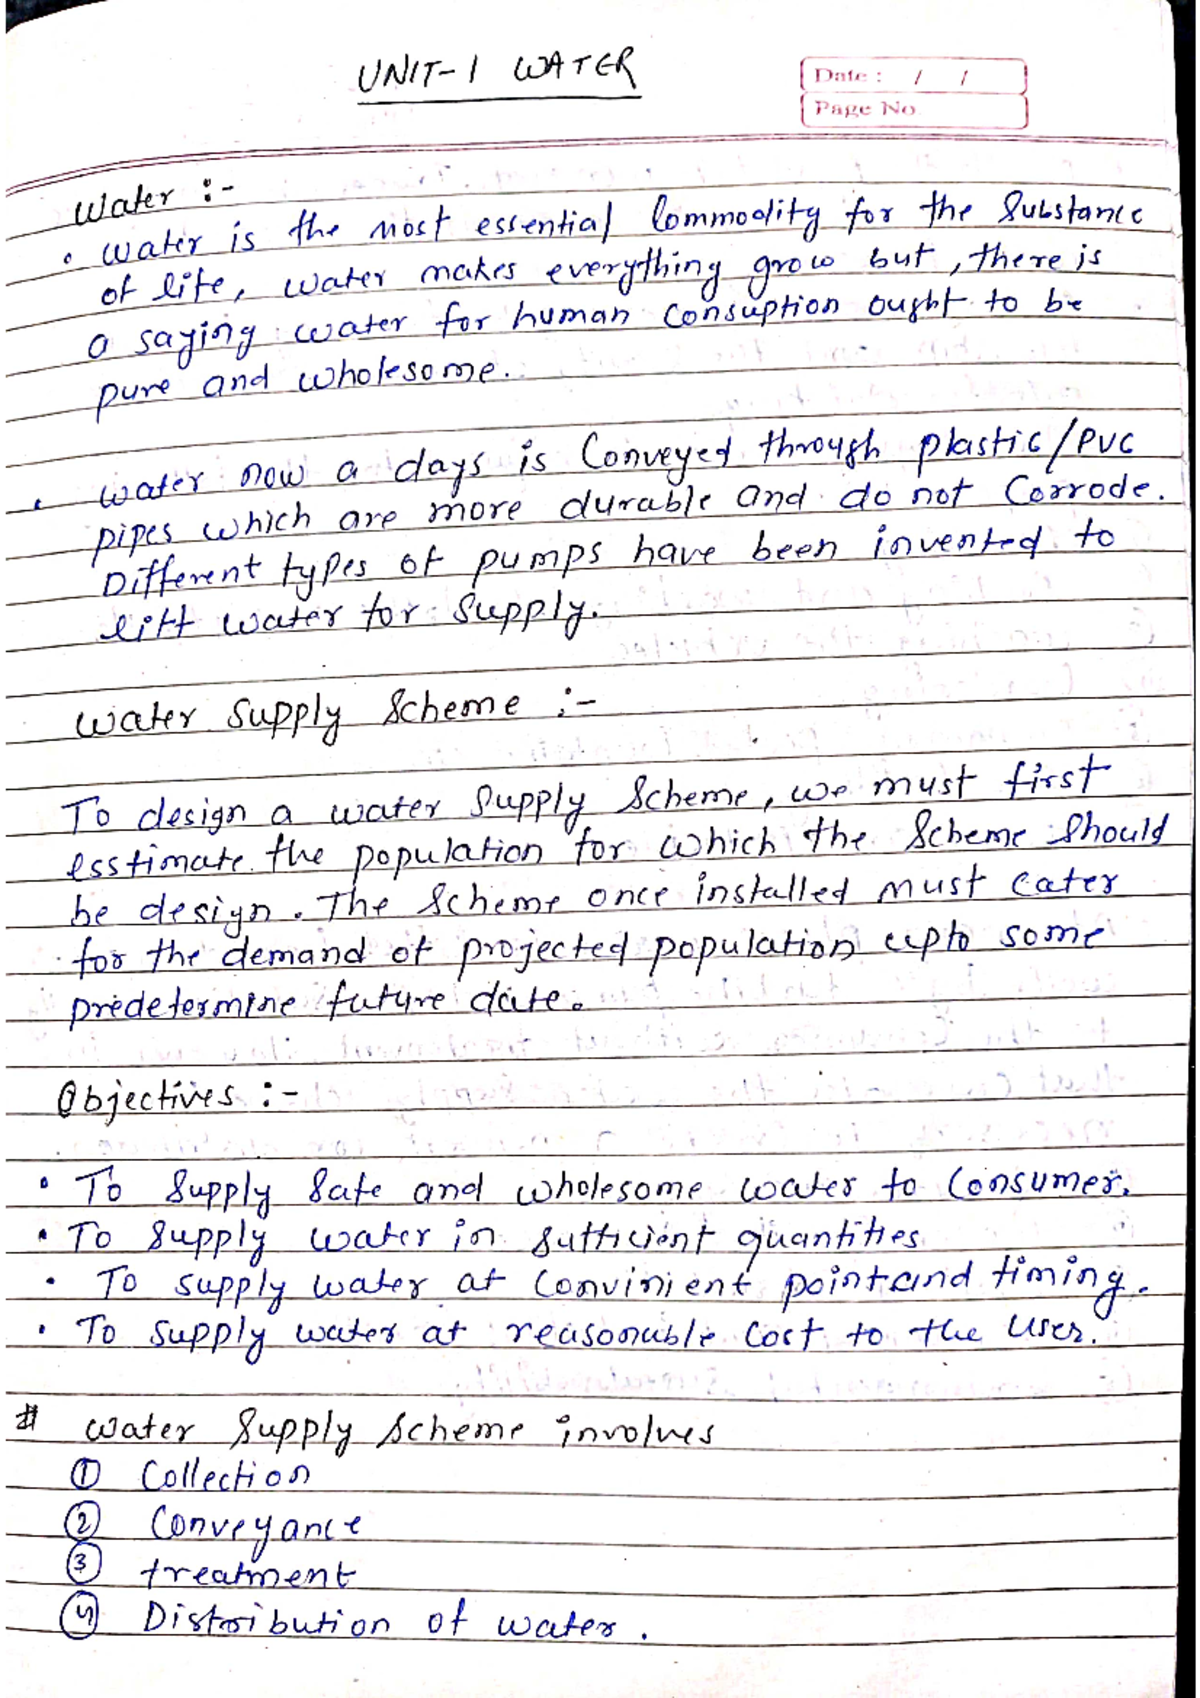 UNIT-1 WATER
Date : / /
Page No
Water :-
• Water is the most essential Commodity for the Substance
of life, water makes everything grow but, there is
a saying water for human Consuption ought to be
pure and wholesome.
• water now a days is Conveyed through plastic/PVC
pipes which are more durable and do not Corrode.
Different types of pumps have been invented to
lift water for supply.
Water Supply Scheme :-
To design a water Supply Scheme, we must first
esstimate the population for which the Scheme Should
be design. The Scheme once installed must Cater
for the demand of projected population upto some
predetermine future date.
Objectives :-
• To Supply Safe and wholesome water to Consumer.
• To Supply water in sufficient quantities
• To supply water at Convinient point and timing.
• To supply water at reasonable Cost to the User.
# Water Supply Scheme involves
① Collection
② Conveyance
③ treatment
④ Distribution of water.